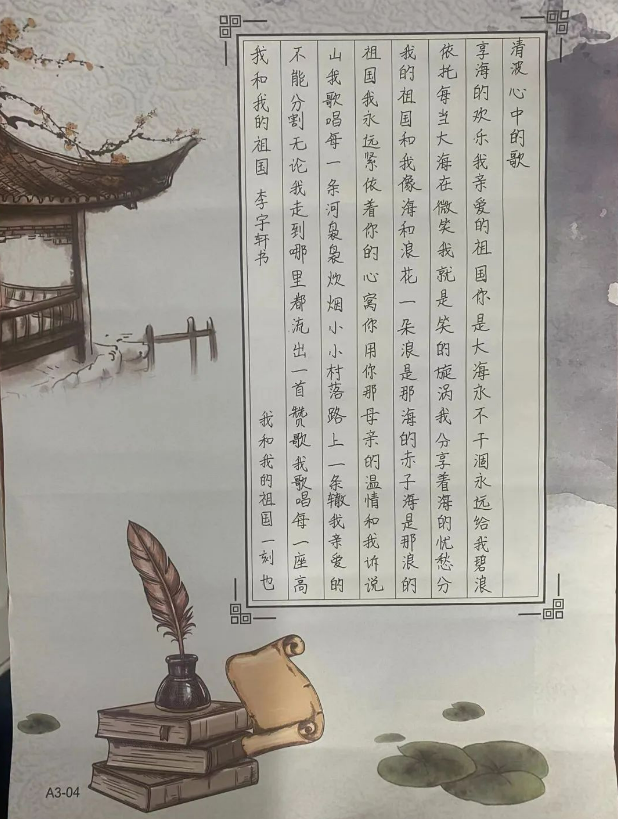 清波心中的歌
享海的欢乐我亲爱的祖国你是大海永不干涸永远给我碧浪
依托每当大海在微笑我就是笑的旋涡我分享着海的忧愁分
我的祖国和我像海和浪花一朵浪是那海的赤子海是那浪的
祖国我永远紧依着你的心窝你用你那母亲的温情和我诉说
山我歌唱每一条河袅袅炊烟小小村落路上一条辙我亲爱的
不能分割无论我走到哪里都流出一首赞歌我歌唱每一座高
我和我的祖国 李宇轩书 我和我的祖国一刻也
A3-04